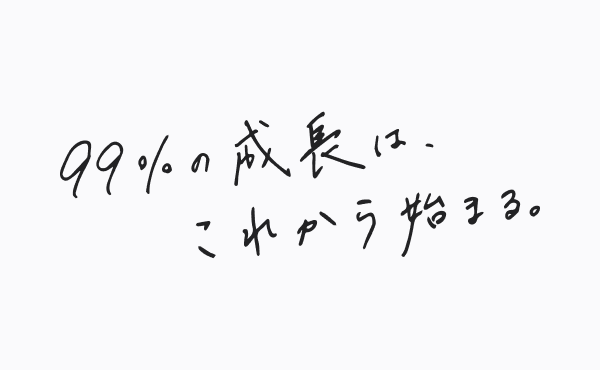 99%の成長は、
これから始まる。